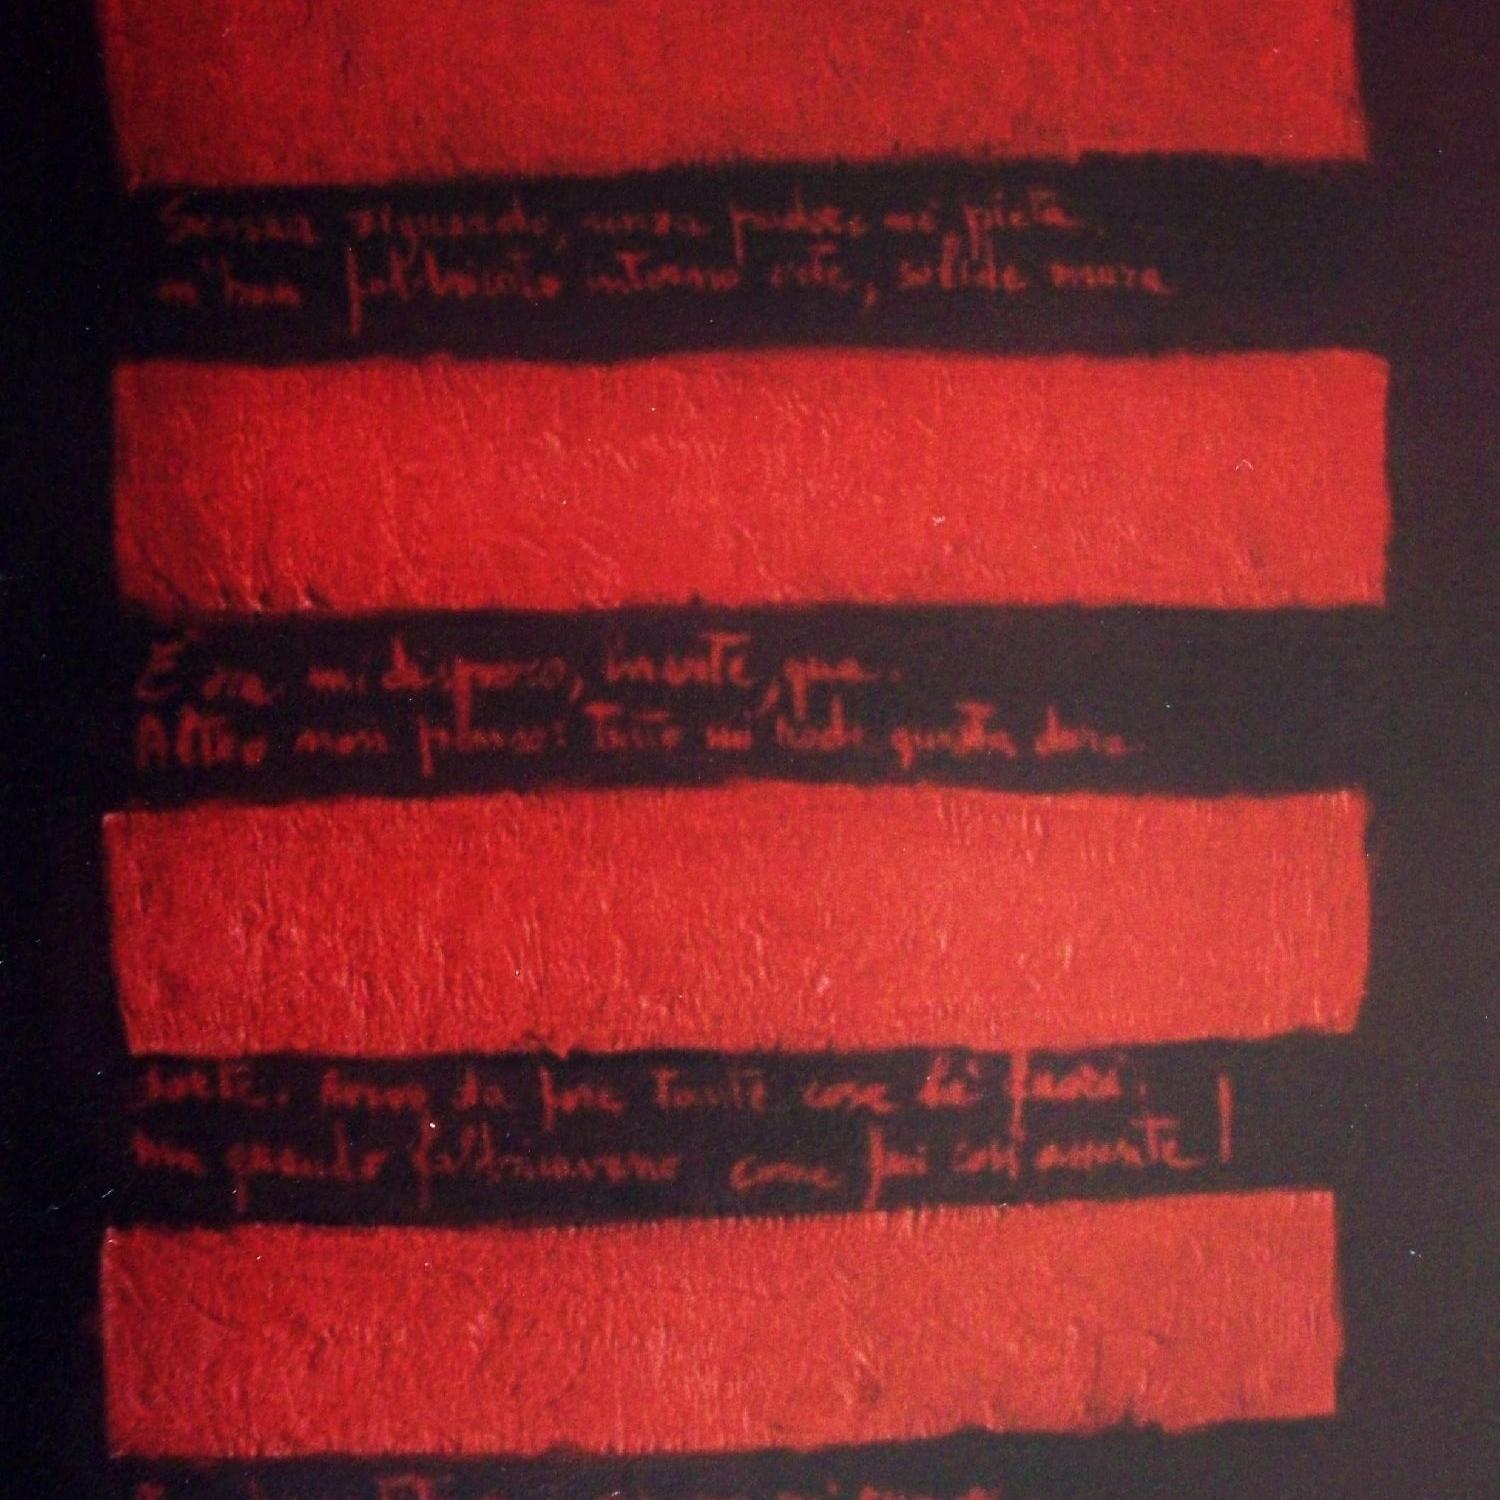 Senza riguardo, senza pudore né pietà
m'han fabbricato intorno erte, solide mura
E ora mi dispero, inerte, qua.
Altro non penso: tutto mi rode questa dura
sorte. Avevo da fare tante cose là fuori.
Ma quando fabbricavano come fui così assente!